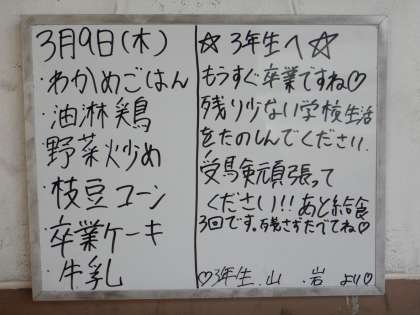 3月9日(木)
・わかめごはん
・油淋鶏
・野菜炒め
・枝豆コーン
・卒業ケーキ
・牛乳
☆3年生へ☆
もうすぐ卒業ですね♡
残り少ない学校生活
をたのしんでください.
受験頑張って
ください!!あと給食
3回です。残さずたべてね♡
♡3年生.山 .岩 より♡